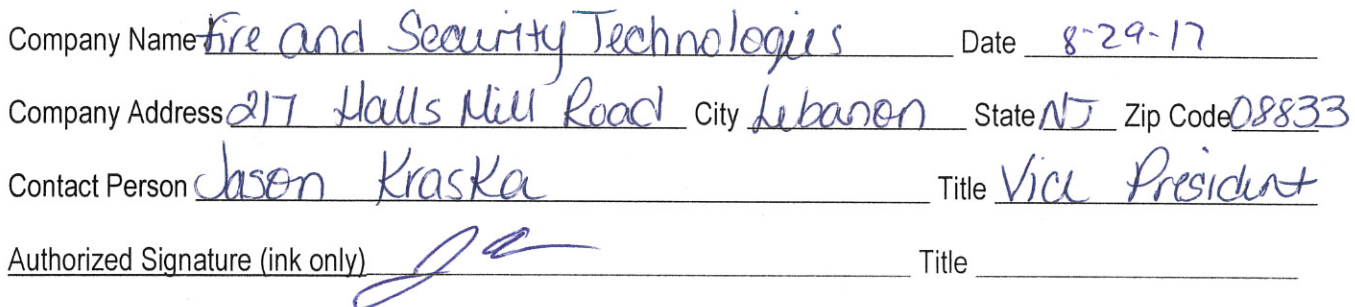 Company Name Fire and Security Technologies Date 8-29-17
Company Address 217 Halls Mill Road City Lebanon State NJ Zip Code 08833
Contact Person Jason Kraska Title Vice President
Authorized Signature (ink only) Title